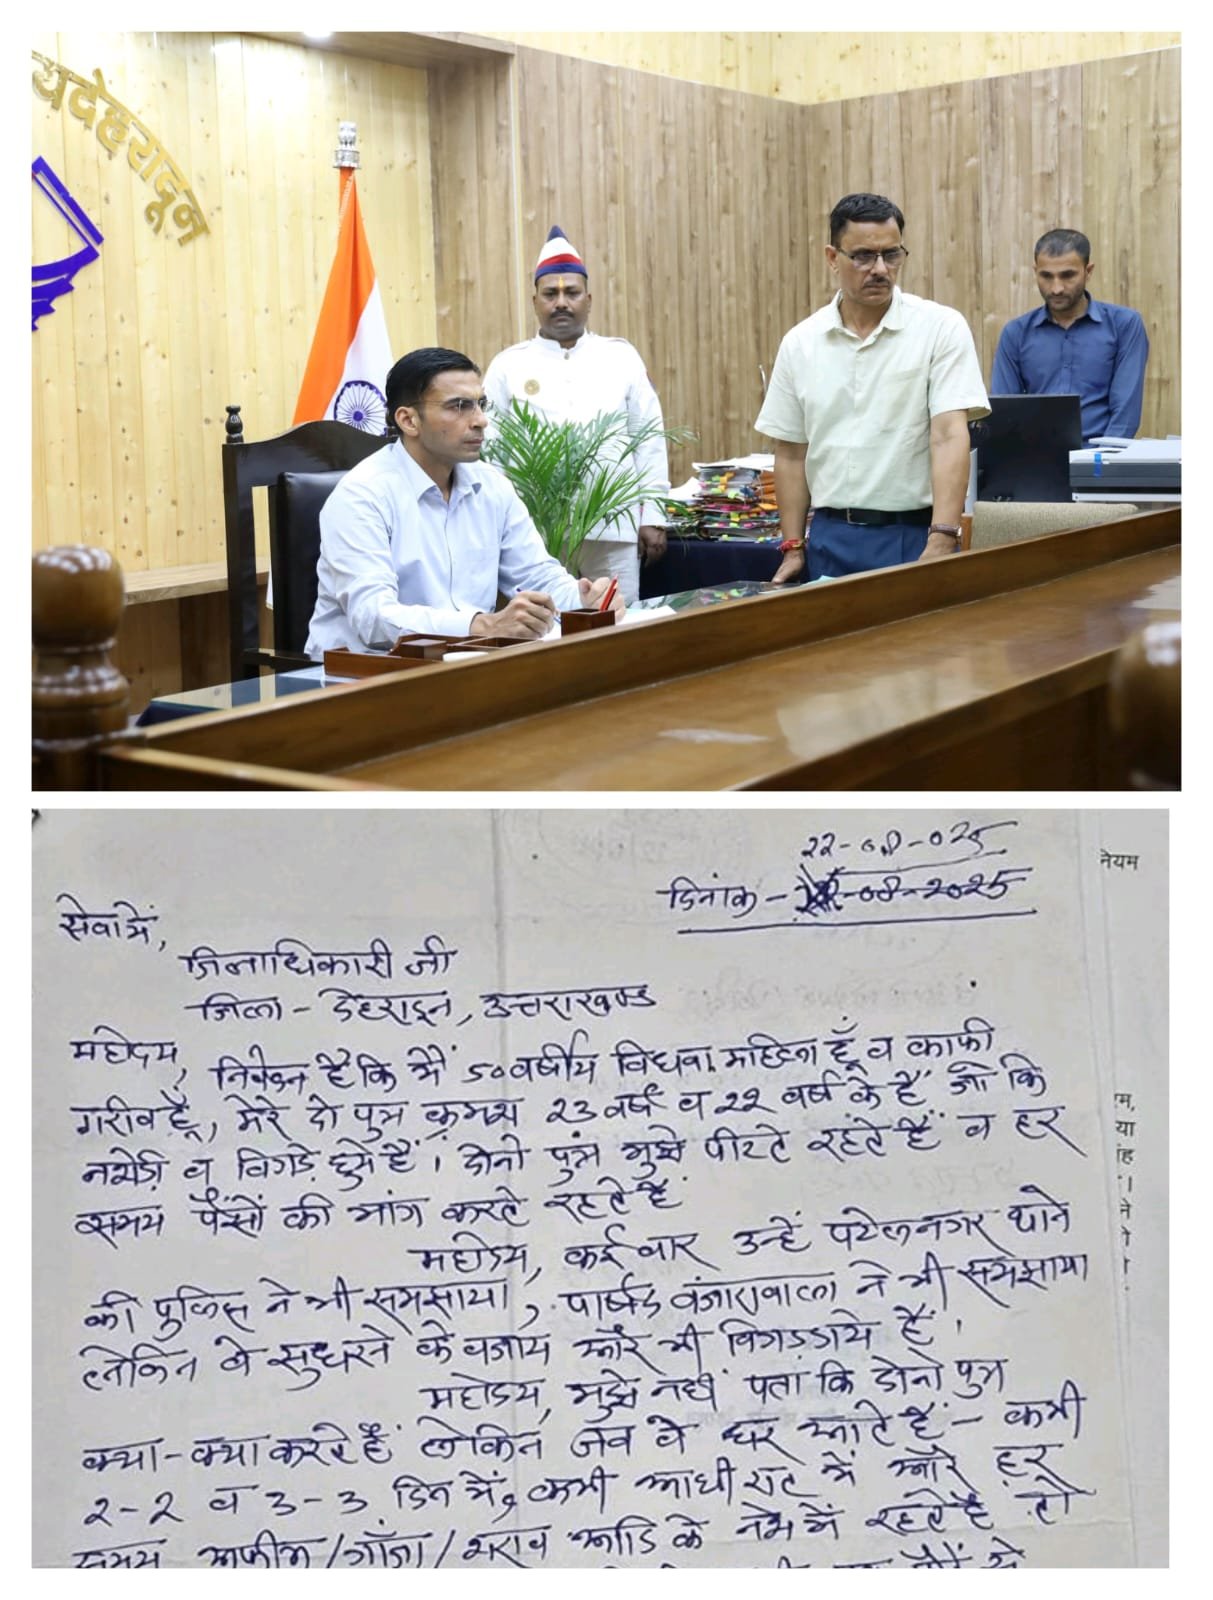 यदेहरादून
22-08-025
दिनांक - -08-2025
नियम
सेवा में,
जिलाधिकारी जी
जिला - देहरादून, उत्तराखण्ड
महोदय,
निवेदन है कि मैं 50 वर्षीय विधवा महिला हूँ व काफी
गरीब हूँ, मेरे दो पुत्र क्रमश 23 वर्ष व 22 वर्ष के हैं जो कि
नशेड़ी व बिगड़े हुये हैं। दोनो पुत्र मुझे पीटते रहते हैं व हर
समय पैसों की मांग करते रहते हैं
महोदय, कई बार उन्हें पटेलनगर थाने
की पुलिस ने भी समझाया, पार्षद बंजारावाला ने भी समझाया
लेकिन वे सुधरने के बजाय और भी बिगड़ गये हैं।
महोदय, मुझे नहीं पता कि दोनो पुत्र
क्या-क्या करते हैं लेकिन जब वे घर आते हैं - कभी
2-2 व 3-3 दिन में, कभी आधी रात में और हर
समय अफीम/गाँजा/शराब आदि के नशे में रहते हैं तो